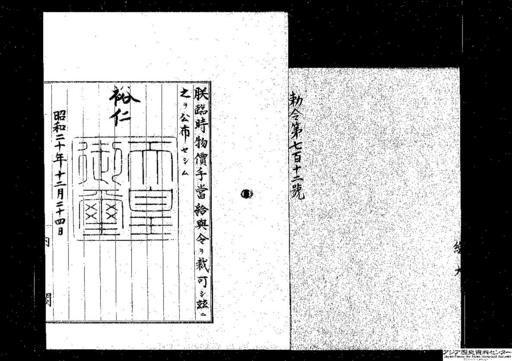 勅令第七百十二號
朕臨時物價手當給與令ヲ裁可シ茲ニ
之ヲ公布セシム
裕仁
天皇御璽
昭和二十年十二月二十四日
内閣
アジア歴史資料センター